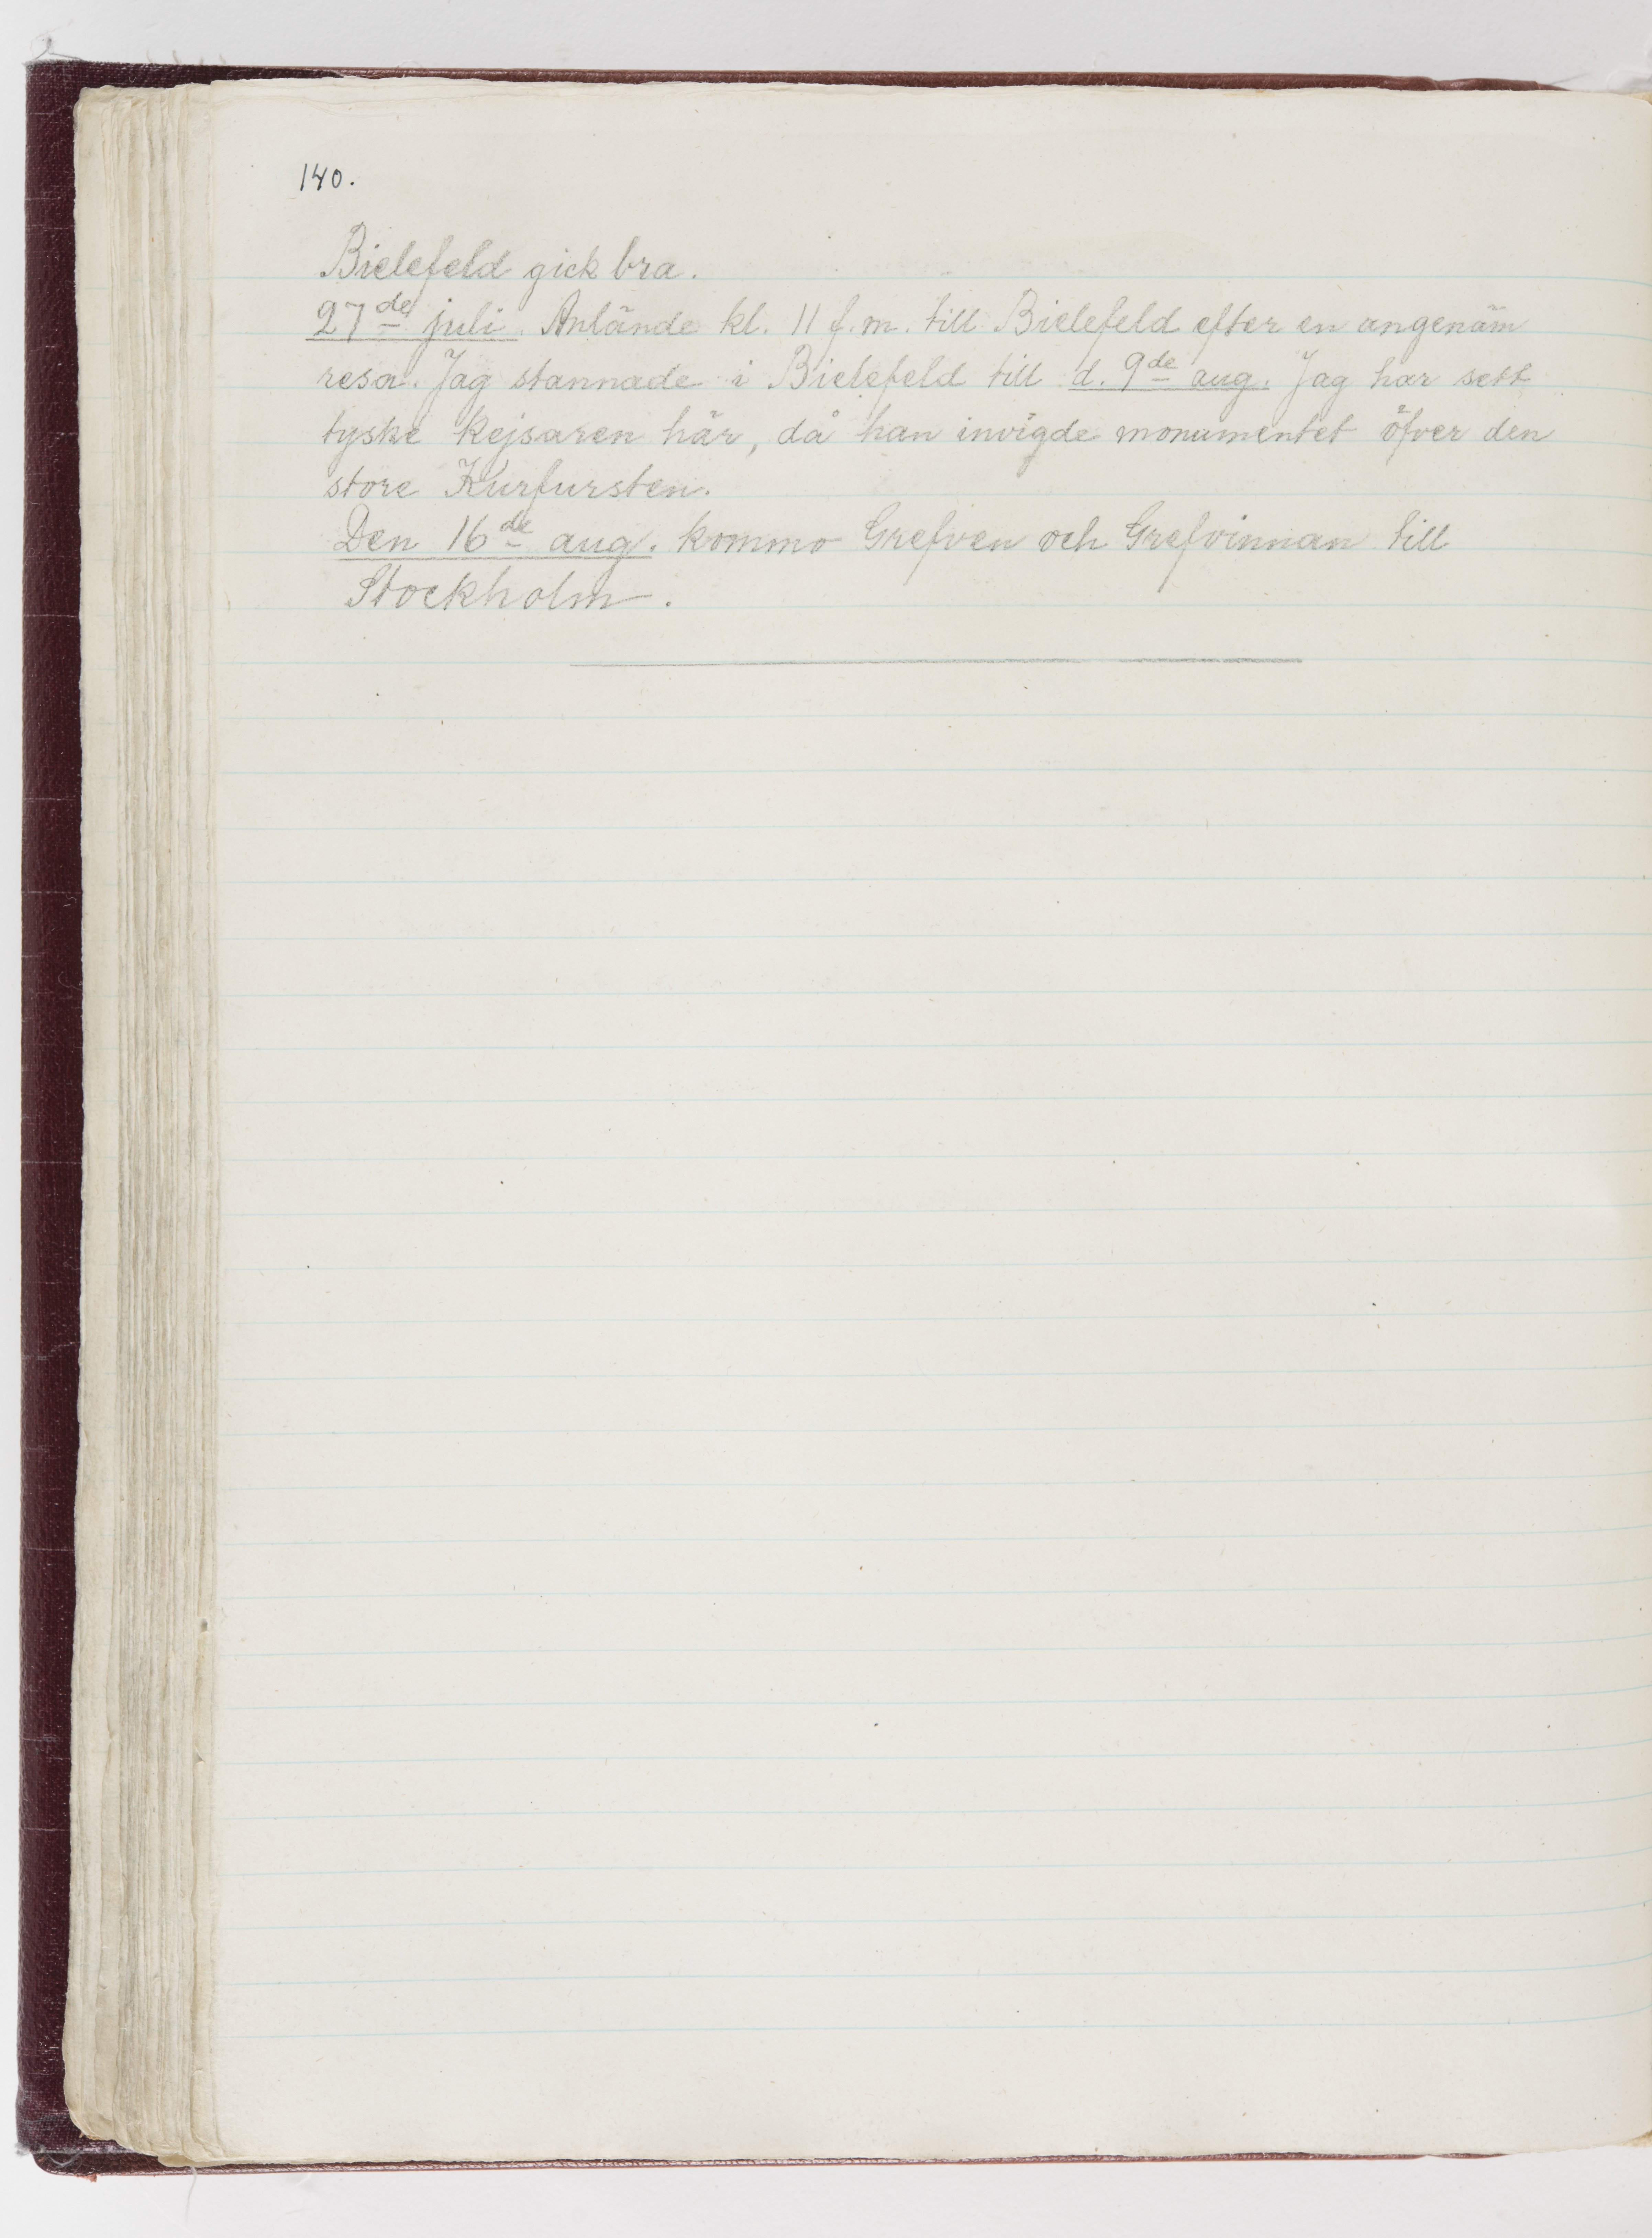 140.
Bielefeld gick bra.
27de juli. Anlände kl. 11 f.m. till Bielefeld efter en angenäm
resa. Jag stannade i Bielefeld till d. 9de aug. Jag har sett
tyske kejsaren här, då han invigde monumentet öfver den
store Kurfursten.
Den 16de aug. kommo Grefven och Grefvinnan till
Stockholm.